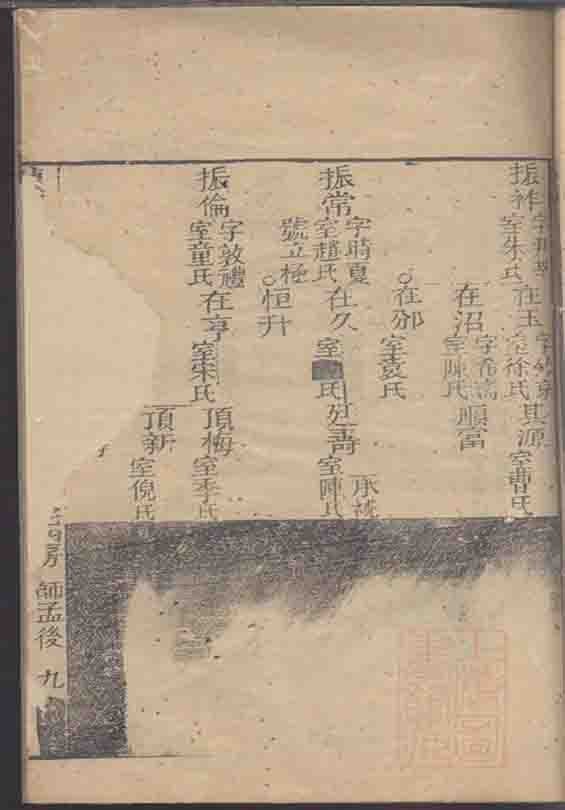 振祚
室朱氏
在玉
室徐氏
其源
室曹氏
在沼
字希濂
室陳氏
順富
在邠
室袁氏
振常
字時夏
室趙氏
號立極
在久
室
氏
室陳氏
恒升
振倫
字敦禮
室童氏
在亨
室朱氏
頂梅
室季氏
頂新
室倪氏
房
師孟後
九